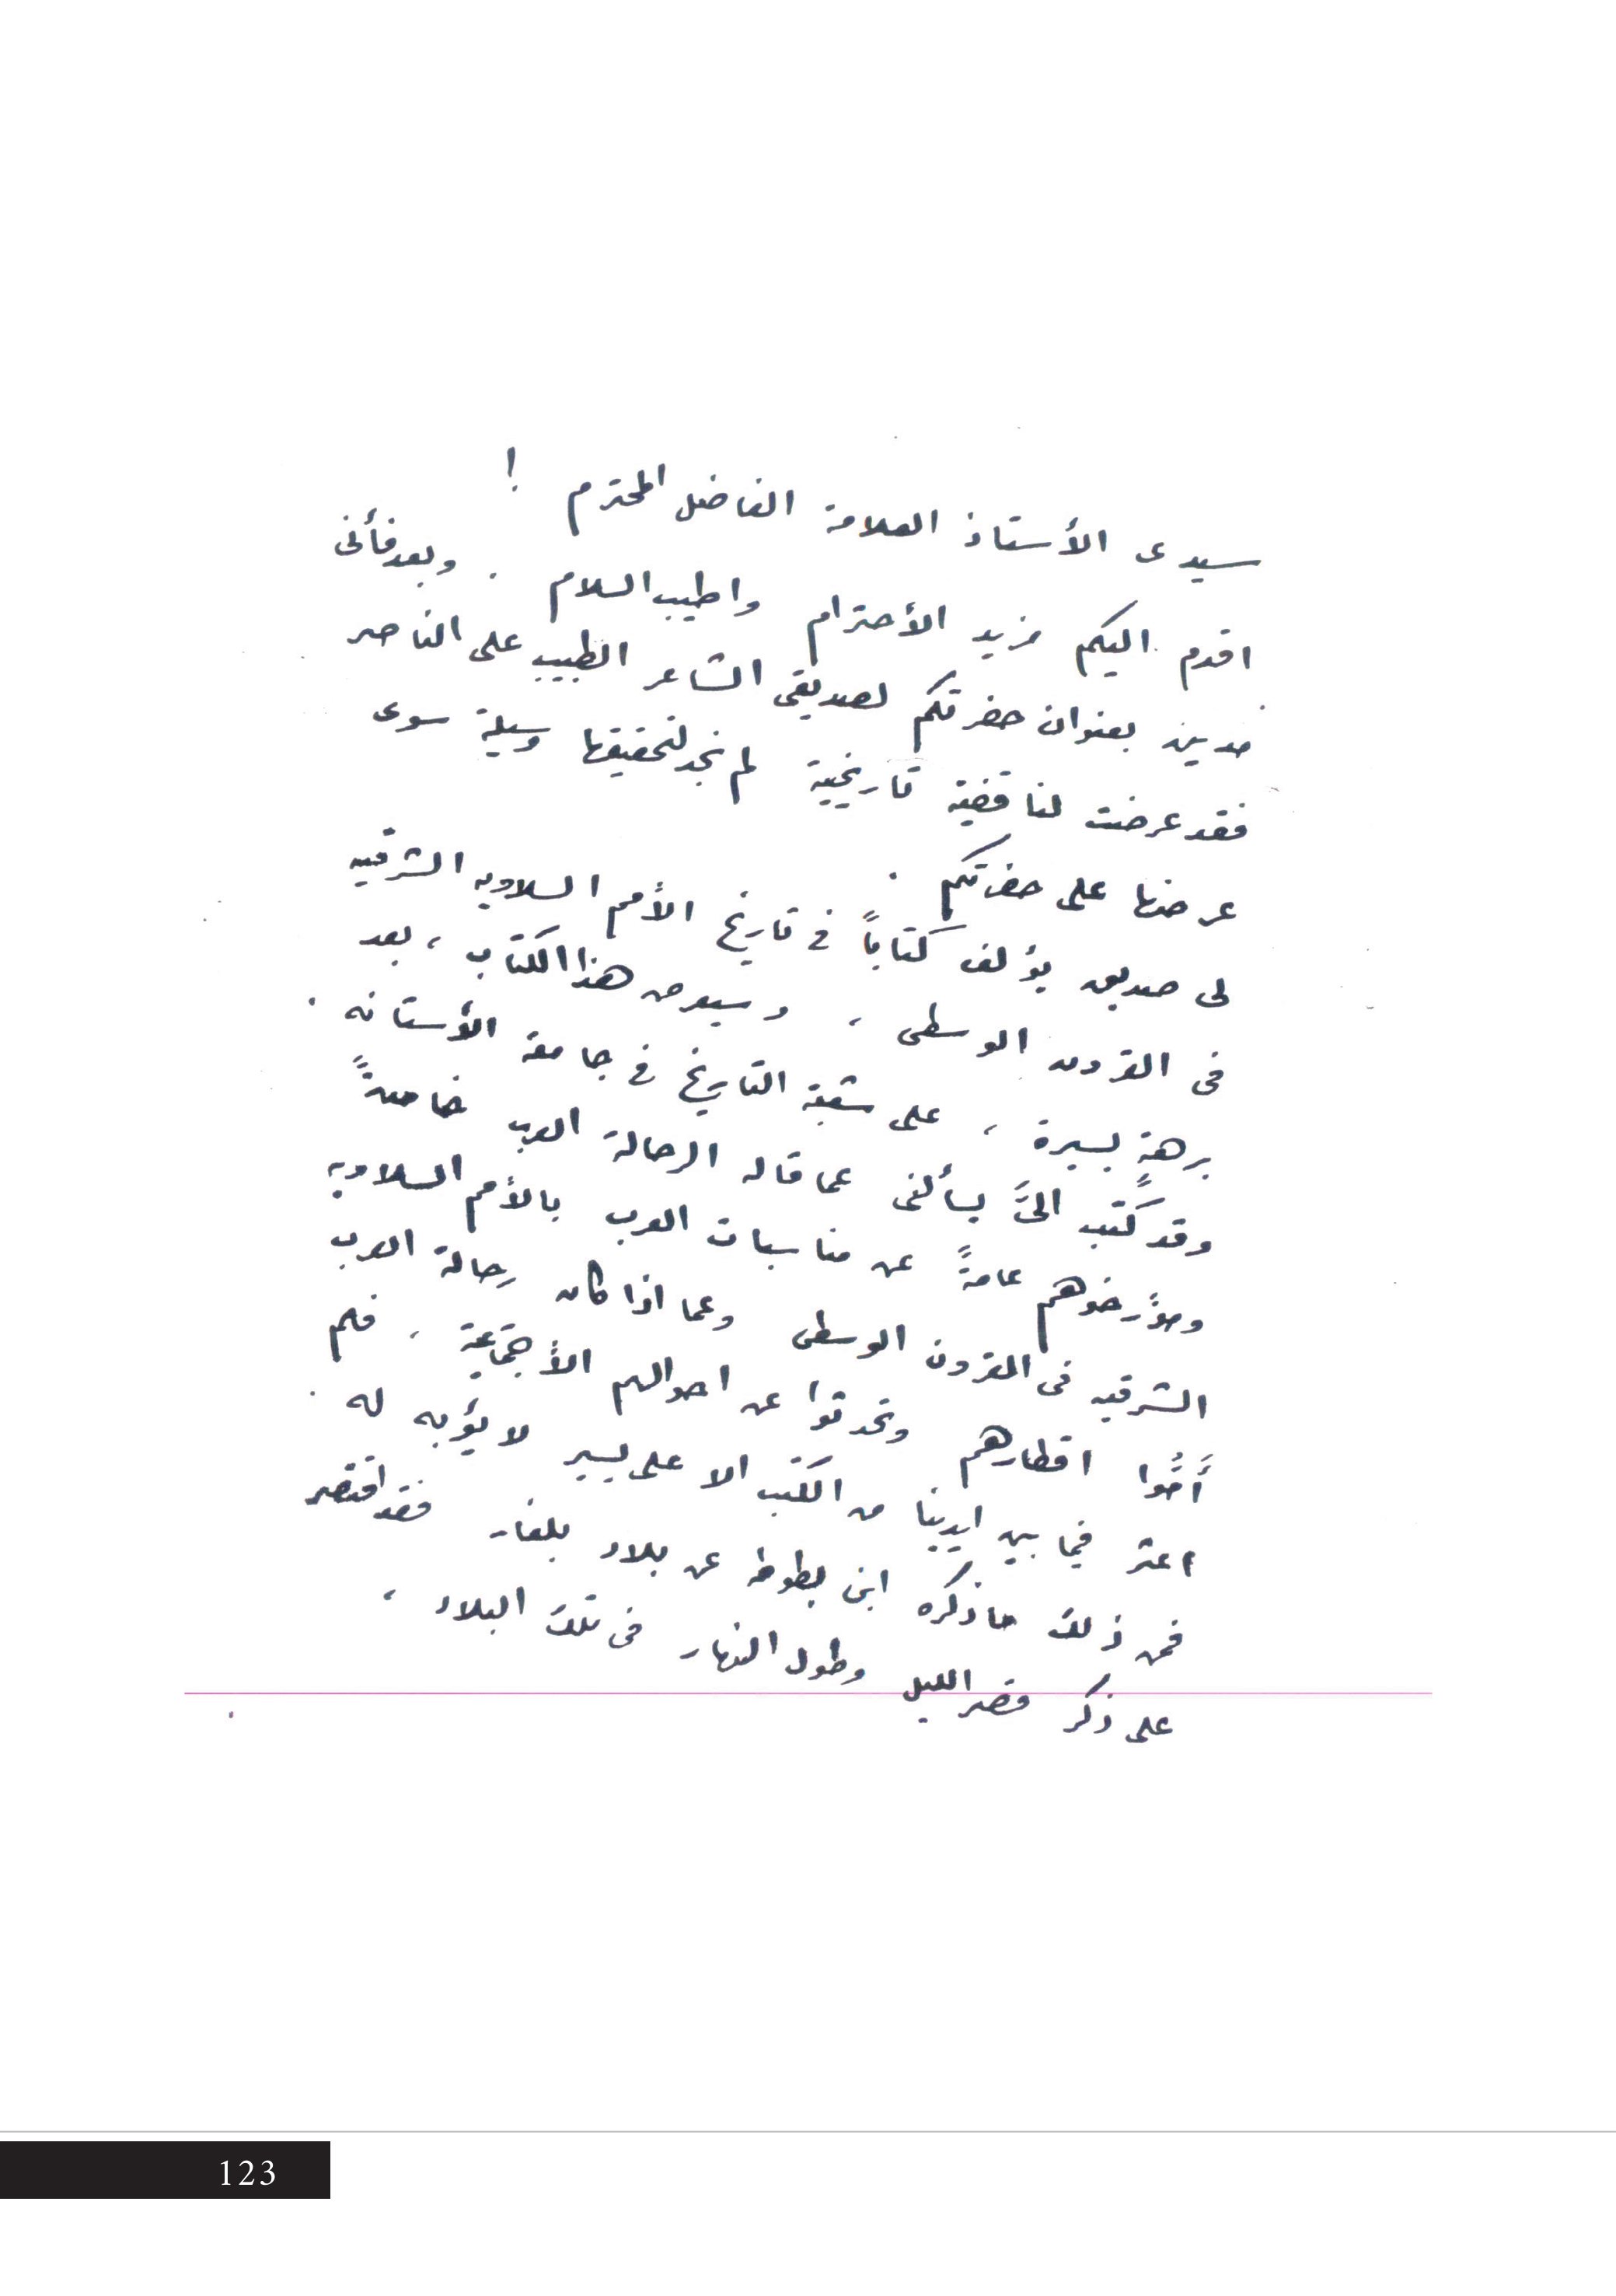 سيدى الأستاذ العلامة الفاضل المحترم !
اقدم اليكم مزيد الأحترام واطيب السلام . وبعد فأنى
مدين بعنوان حضرتكم لصديقى الشاعر الطبيب على الناصر
فقد عرضت لنا قضية تاريخية لم نجد لتحقيقها وسيلة سوى
عرضها على حضرتكم .
لى صديق يؤلف كتاباً في تاريخ الأمم السلاوية الشرقية
فى القرون الوسطى ، وسيعرض هذا الكتاب ، بعد
برهةٍ يسيرة ، على شعبة التاريخ في جامعة الأستانه .
وقد كتب الىَّ يسألنى عما قاله الرحالة العرب خاصةً
ومؤرخوهم عامةً عن مناسبات العرب بالأمم السلاوية
الشرقية فى القرون الوسطى وعما اذا كان رحالة العرب
أمّوا اقطارهم وتحدثوا عن احوالهم الأجتماعية ، فلم
اعثر فيما بين ايدينا من الكتب الا على يسير لا يؤبه له .
فمن ذلك ما ذكره ابن بطوطه عن بلاد بلغار فقد اقتصر
على ذكر قصر الليل وطول النهار فى تلك البلاد ،
123